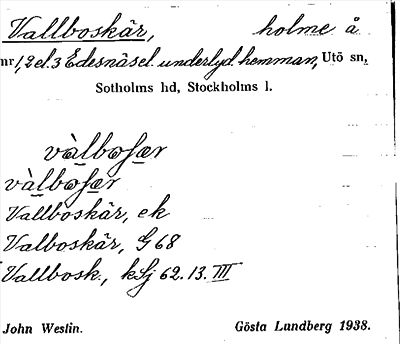 Vallboskär, holme å
nr 1, 2 el. 3 Edesnäs el. underlyd. hemman, Utö sn,
Sotholms hd, Stockholms l.
vàlboʃær
vàlboʃær
Vallboskär, ek
Valboskär, G 68
Vallbosk., kSj 62. 13. III
John Westin. Gösta Lundberg 1938.